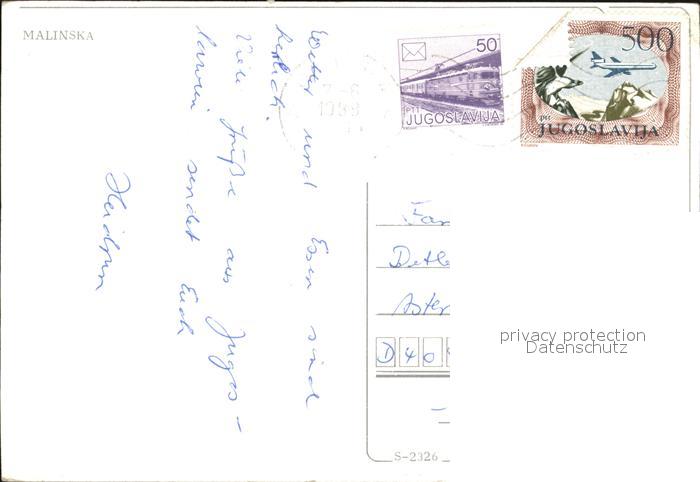 MALINSKA
50
PTT
JUGOSLAVIJA
500
PTT
JUGOSLAVIJA
Wetter und Essen sind
herrlich.
Viele Grüße aus Jugos-
lawien sendet Euch
Heidrun
Fam
Detle
Aster
D 4 0
privacy protection
Datenschutz
S-2326